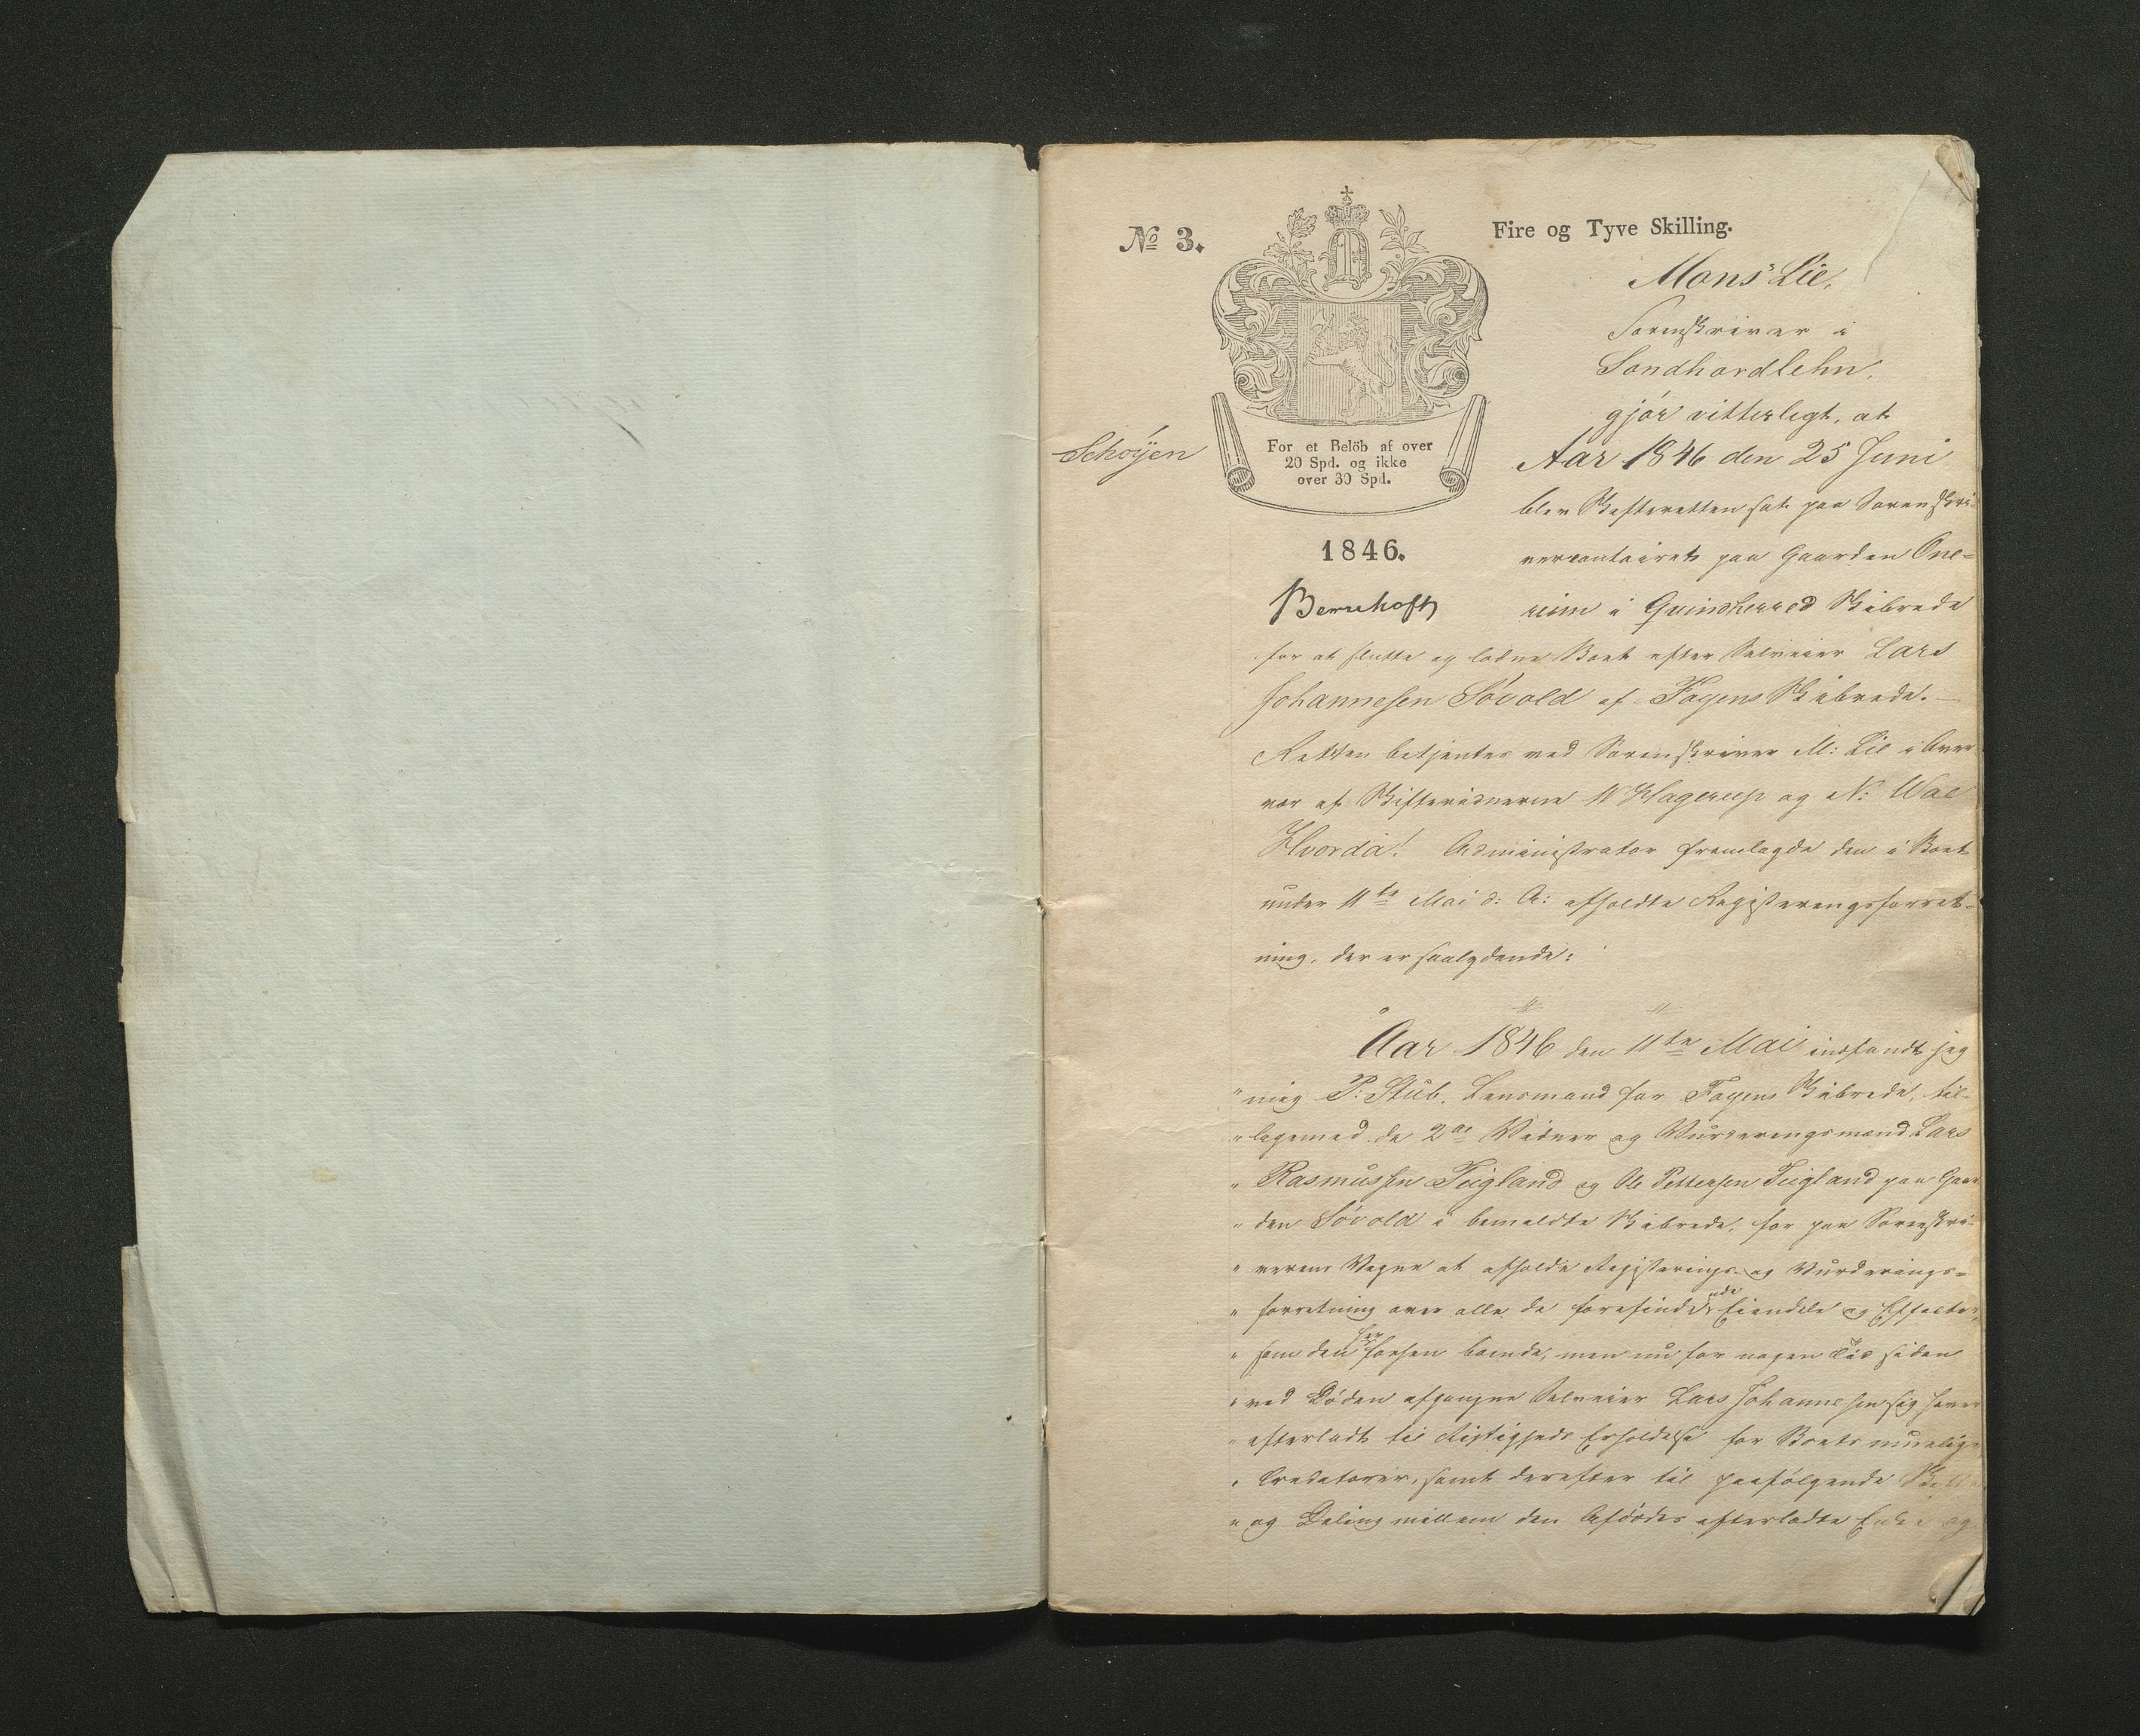 № 3.
Fire og Tyve Skilling.
Mons Lie,
Sorenskriver i
Søndhordlehn,
gjør vitterligt, at
Schøyen
For et Belöb af over
20 Spd. og ikke
over 30 Spd.
Aar 1846 den 25 Juni
blev Skifteretten sat paa Sorenskri-
1846.
vercontoiret paa Gaarden One-
Bernhoft
reim i Qvindherred Skibrede
for at slutte og lodne Boet efter Selveier Lars
Johannesen Søvold af Føyens Skibrede. –
Retten betjentes ved Sorenskriver M: Lie i Over
vær af Skiftevidnerne Hagerup og N: Wae
Hvorda! Administrator fremlagde den i Boet
under 11te Mai d: A: afholdte Registreringsforret-
ning, der er saalydende:
Aar 1846 den 11te Mai indfandt jeg
" mig P: Stub, Lensmand for Føyens Skibrede, til-
" ligemed de 2de Vidner og Vurderingsmænd Lars
" Rasmussen Tiigland og Ole Pettersen Tiigland paa Gaar
" den Søvold i bemeldte Skibrede, for paa Sorenskri-
" verens Vegne at afholde Registerings- og Vurderings-
" forretning over alle de forefindende Eiendele og Effecter,
" som den her forhen boende, men nu for nogen Tid siden
" ved Døden afgangne Selveier Lars Johannesen sig haver
" efterladt til Rigtigheds Erholdelse for Boets muelige
" Creditorer, samt derefter til paafølgende Skifte
" og Deling mellem den Afdødes efterladte Enke og